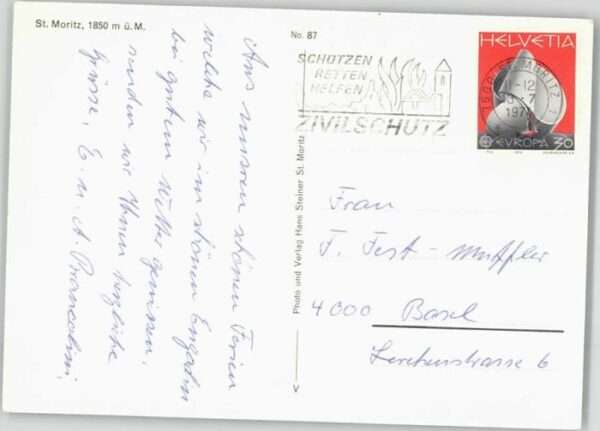 St. Moritz, 1850 m ü. M.
No. 87
SCHÜTZEN
RETTEN
HELFEN
ZIVILSCHUTZ
HELVETIA
ST. MORITZ 1
-12
7
EUROPA 30
Aus unsren schönen Ferien
welche wir im schönen Engadin
bei gutem Wetter geniessen.
senden wir Ihnen herzliche
Grüsse. E. u. A.
Photo und Verlag Hans Steiner St. Moritz
Frau
F. Fest-Muffler
4000 Basel
Lerchenstrasse 6